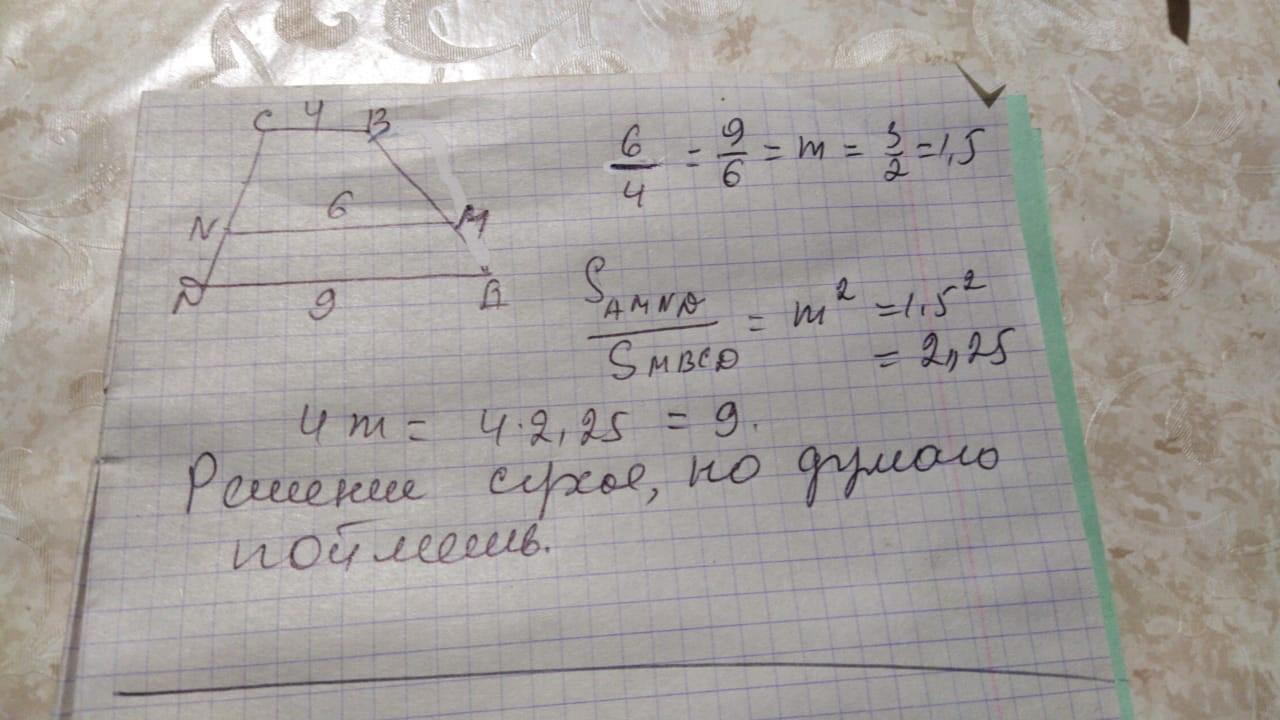 C 4 B
6/4 = 9/6 = m = 3/2 = 1,5
N 6 M
D 9 A
S AMND / S MBCD = m² = 1,5²
= 2,25
4m = 4·2,25 = 9.
Решение сухое, но думаю
поймешь.